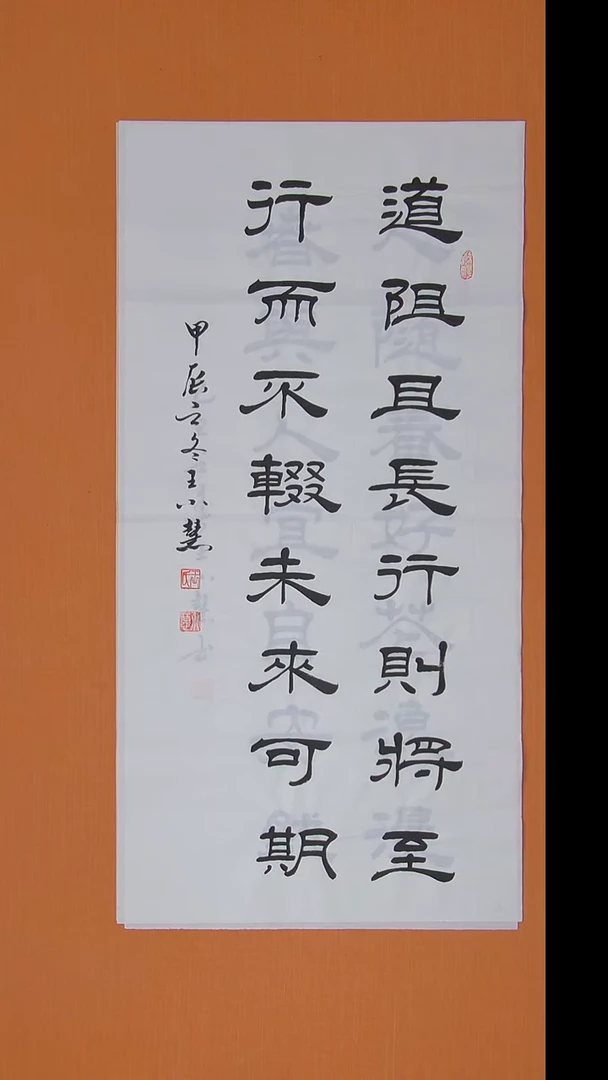 道阻且長行則將至
行而不輟未來可期
甲辰立冬王小慧